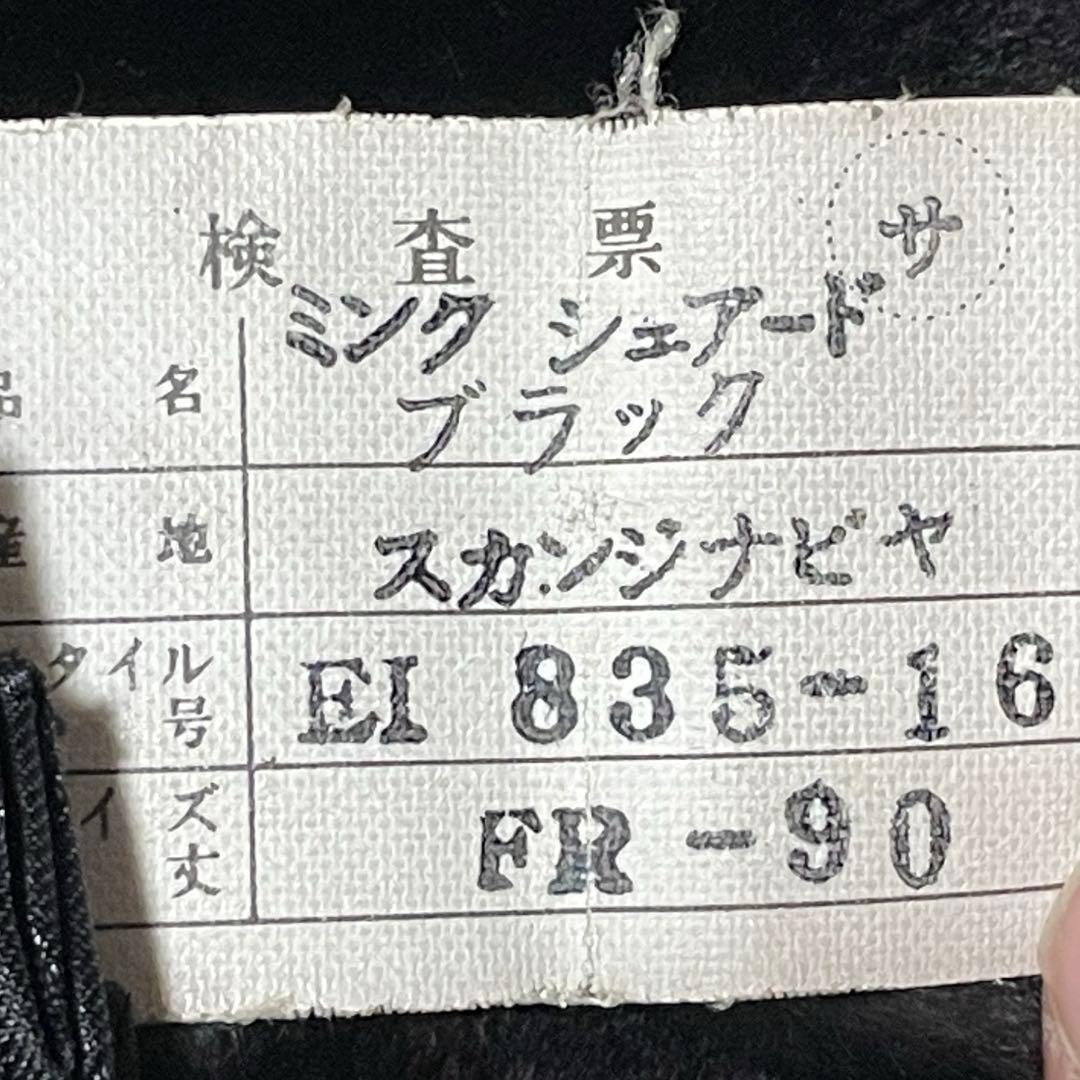 検査票 サ
品名 ミンク シェアード
ブラック
産地 スカンジナビヤ
タイル
号 EI 835-16
イズ
丈 FR-90